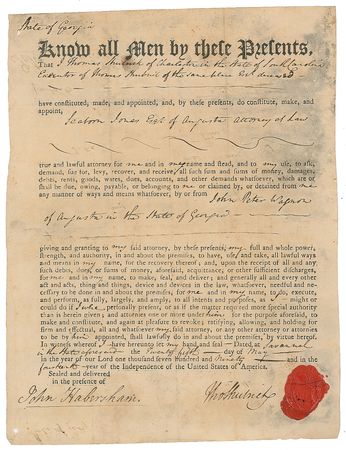 State of Georgia
Know all Men by these Presents,
That I Thomas Shubrick of Charleston in the State of South Carolina
Executor of Thomas Shubrick of the same place Esqr deceased
have constituted, made, and appointed, and, by these presents, do constitute, make, and
appoint, Seaborn Jones Esqr of Augusta Attorney at Law
true and lawful attorney for me and in my name and stead, and to my use, to ask,
demand, sue for, levy, recover, and receive, all such sum and sums of money, damages,
debts, rents, goods, wares, dues, accounts, and other demands whatsoever, which are or
shall be due, owing, payable, or belonging to me or claimed by, or detained from me
any manner of ways and means whatsoever, by or from John Peter Wagnon
of Augusta in the State of Georgia
giving and granting to my said attorney, by these presents, my full and whole power,
strength, and authority, in and about the premises, to have, use, and take, all lawful ways
and means in my name, for the recovery thereof; and, upon the receipt of all and any
such debts, dues, or sums of money, aforesaid, acquittance, or other sufficient discharges,
for me and in my name, to make, seal, and deliver; and generally all and every other
act and acts, thing and things, device and devices in the law, whatsoever, needful and ne-
cessary to be done in and about the premises, for me and in my name, to do, execute,
and perform, as fully, largely, and amply, to all intents and purposes, as I might or
could do if personally present, or as if the matter required more special authority
than is herein given; and attornies one or more under him for the purpose aforesaid, to
make and constitute, and again at pleasure to revoke; ratifying, allowing, and holding for
firm and effectual, all and whatsoever my said attorney, or any other attorney or attornies
to be by him appointed, shall lawfully do in and about the premises, by virtue hereof.
In witness whereof I have hereunto set my hand and seal Dated at Savannah
in the State aforesaid the Twenty fifth day of May
in the year of our Lord one thousand seven hundred and Ninety and in the
fourteenth year of the Independence of the United States of America.
Sealed and delivered
in the presence of
John Habersham
Tho Shubrick